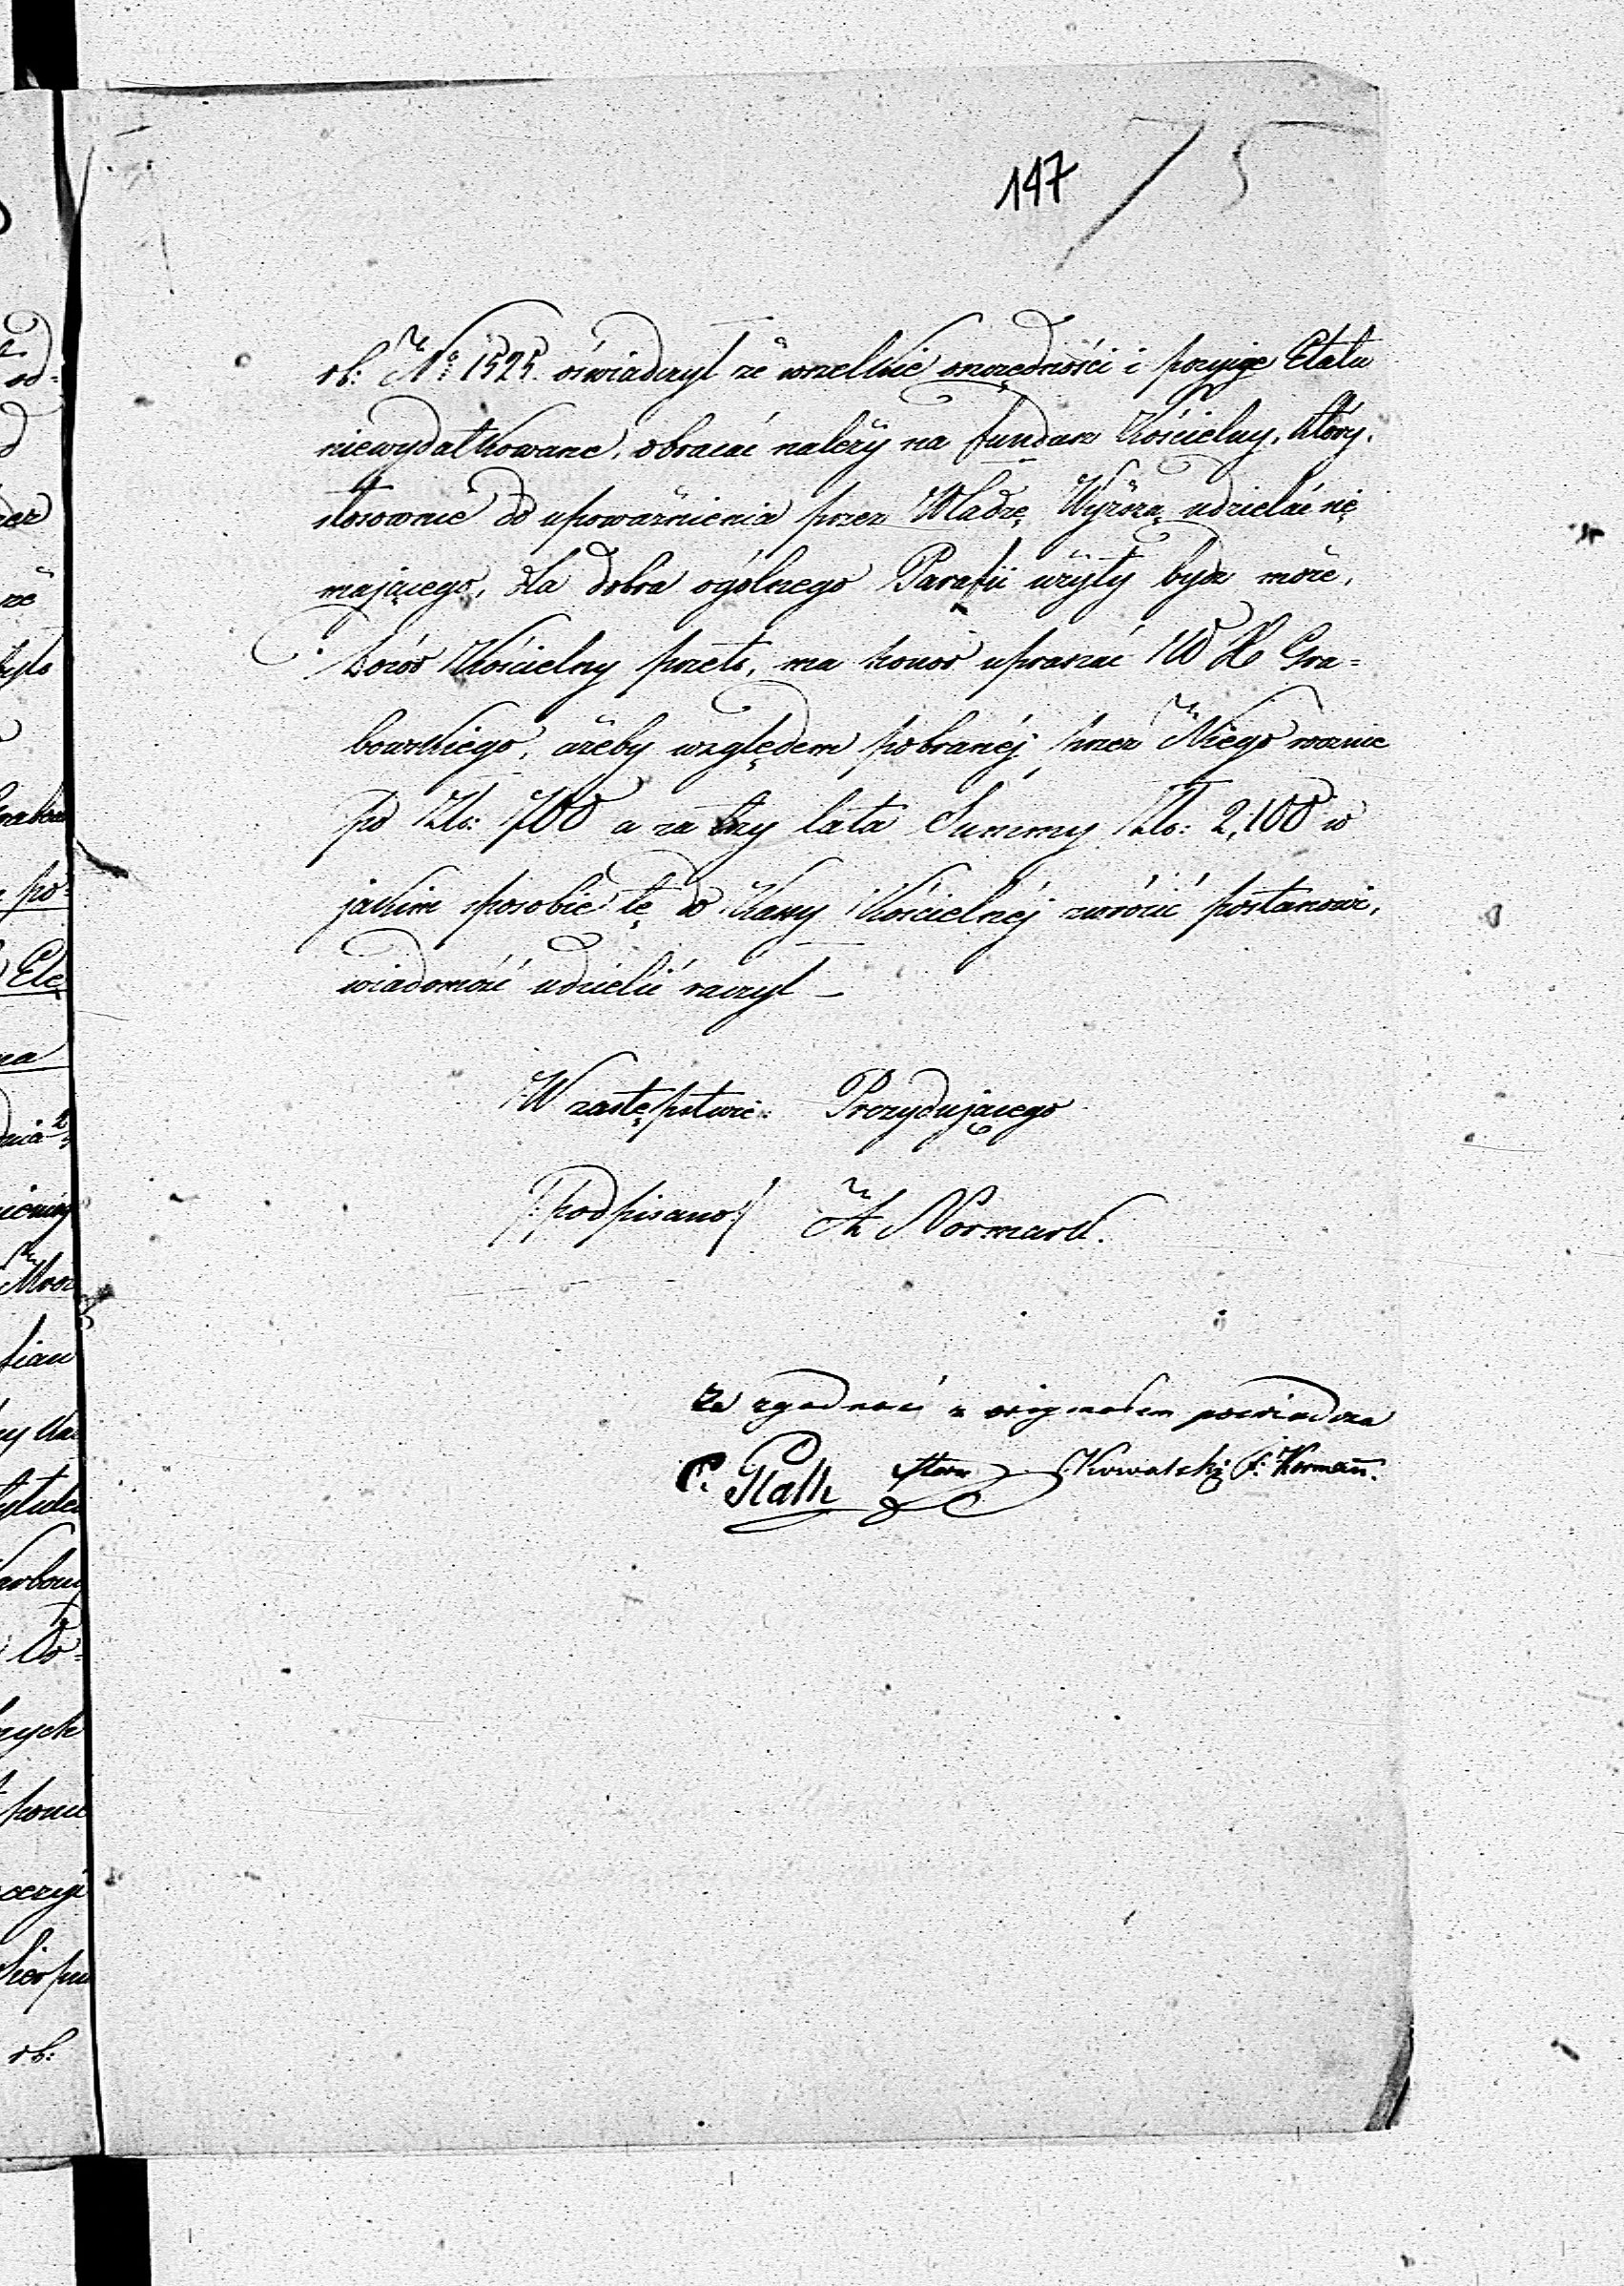 147 75
rb: No 1525. oświadczył że wszelkie oszczędności i pozycye Etatu
niewydatkowane, obracać należy na fundusz Kościelny, który,
stosownie do upoważnienia przez Władzę Wyższą udzielać się
mającego, dla dobra ogólnego Parafii użyty bydz może,
Dozór Kościelny przeto, ma honor upraszać W X Gra=
bowskiego, ażeby względem pobranéj przez Niego rocznie
po Złp: 700 a za trzy lata Summy Złp: 2,100 w
jakim sposobie tę do Kassy Kościelnéj zwrócić postanowi,
wiadomość udzielić raczył —
W zastępstwie: Prezydującego
/:podpisano:/ Normark.
Za zgodność z oryginałem poświadcza
C. Rath Kowalski